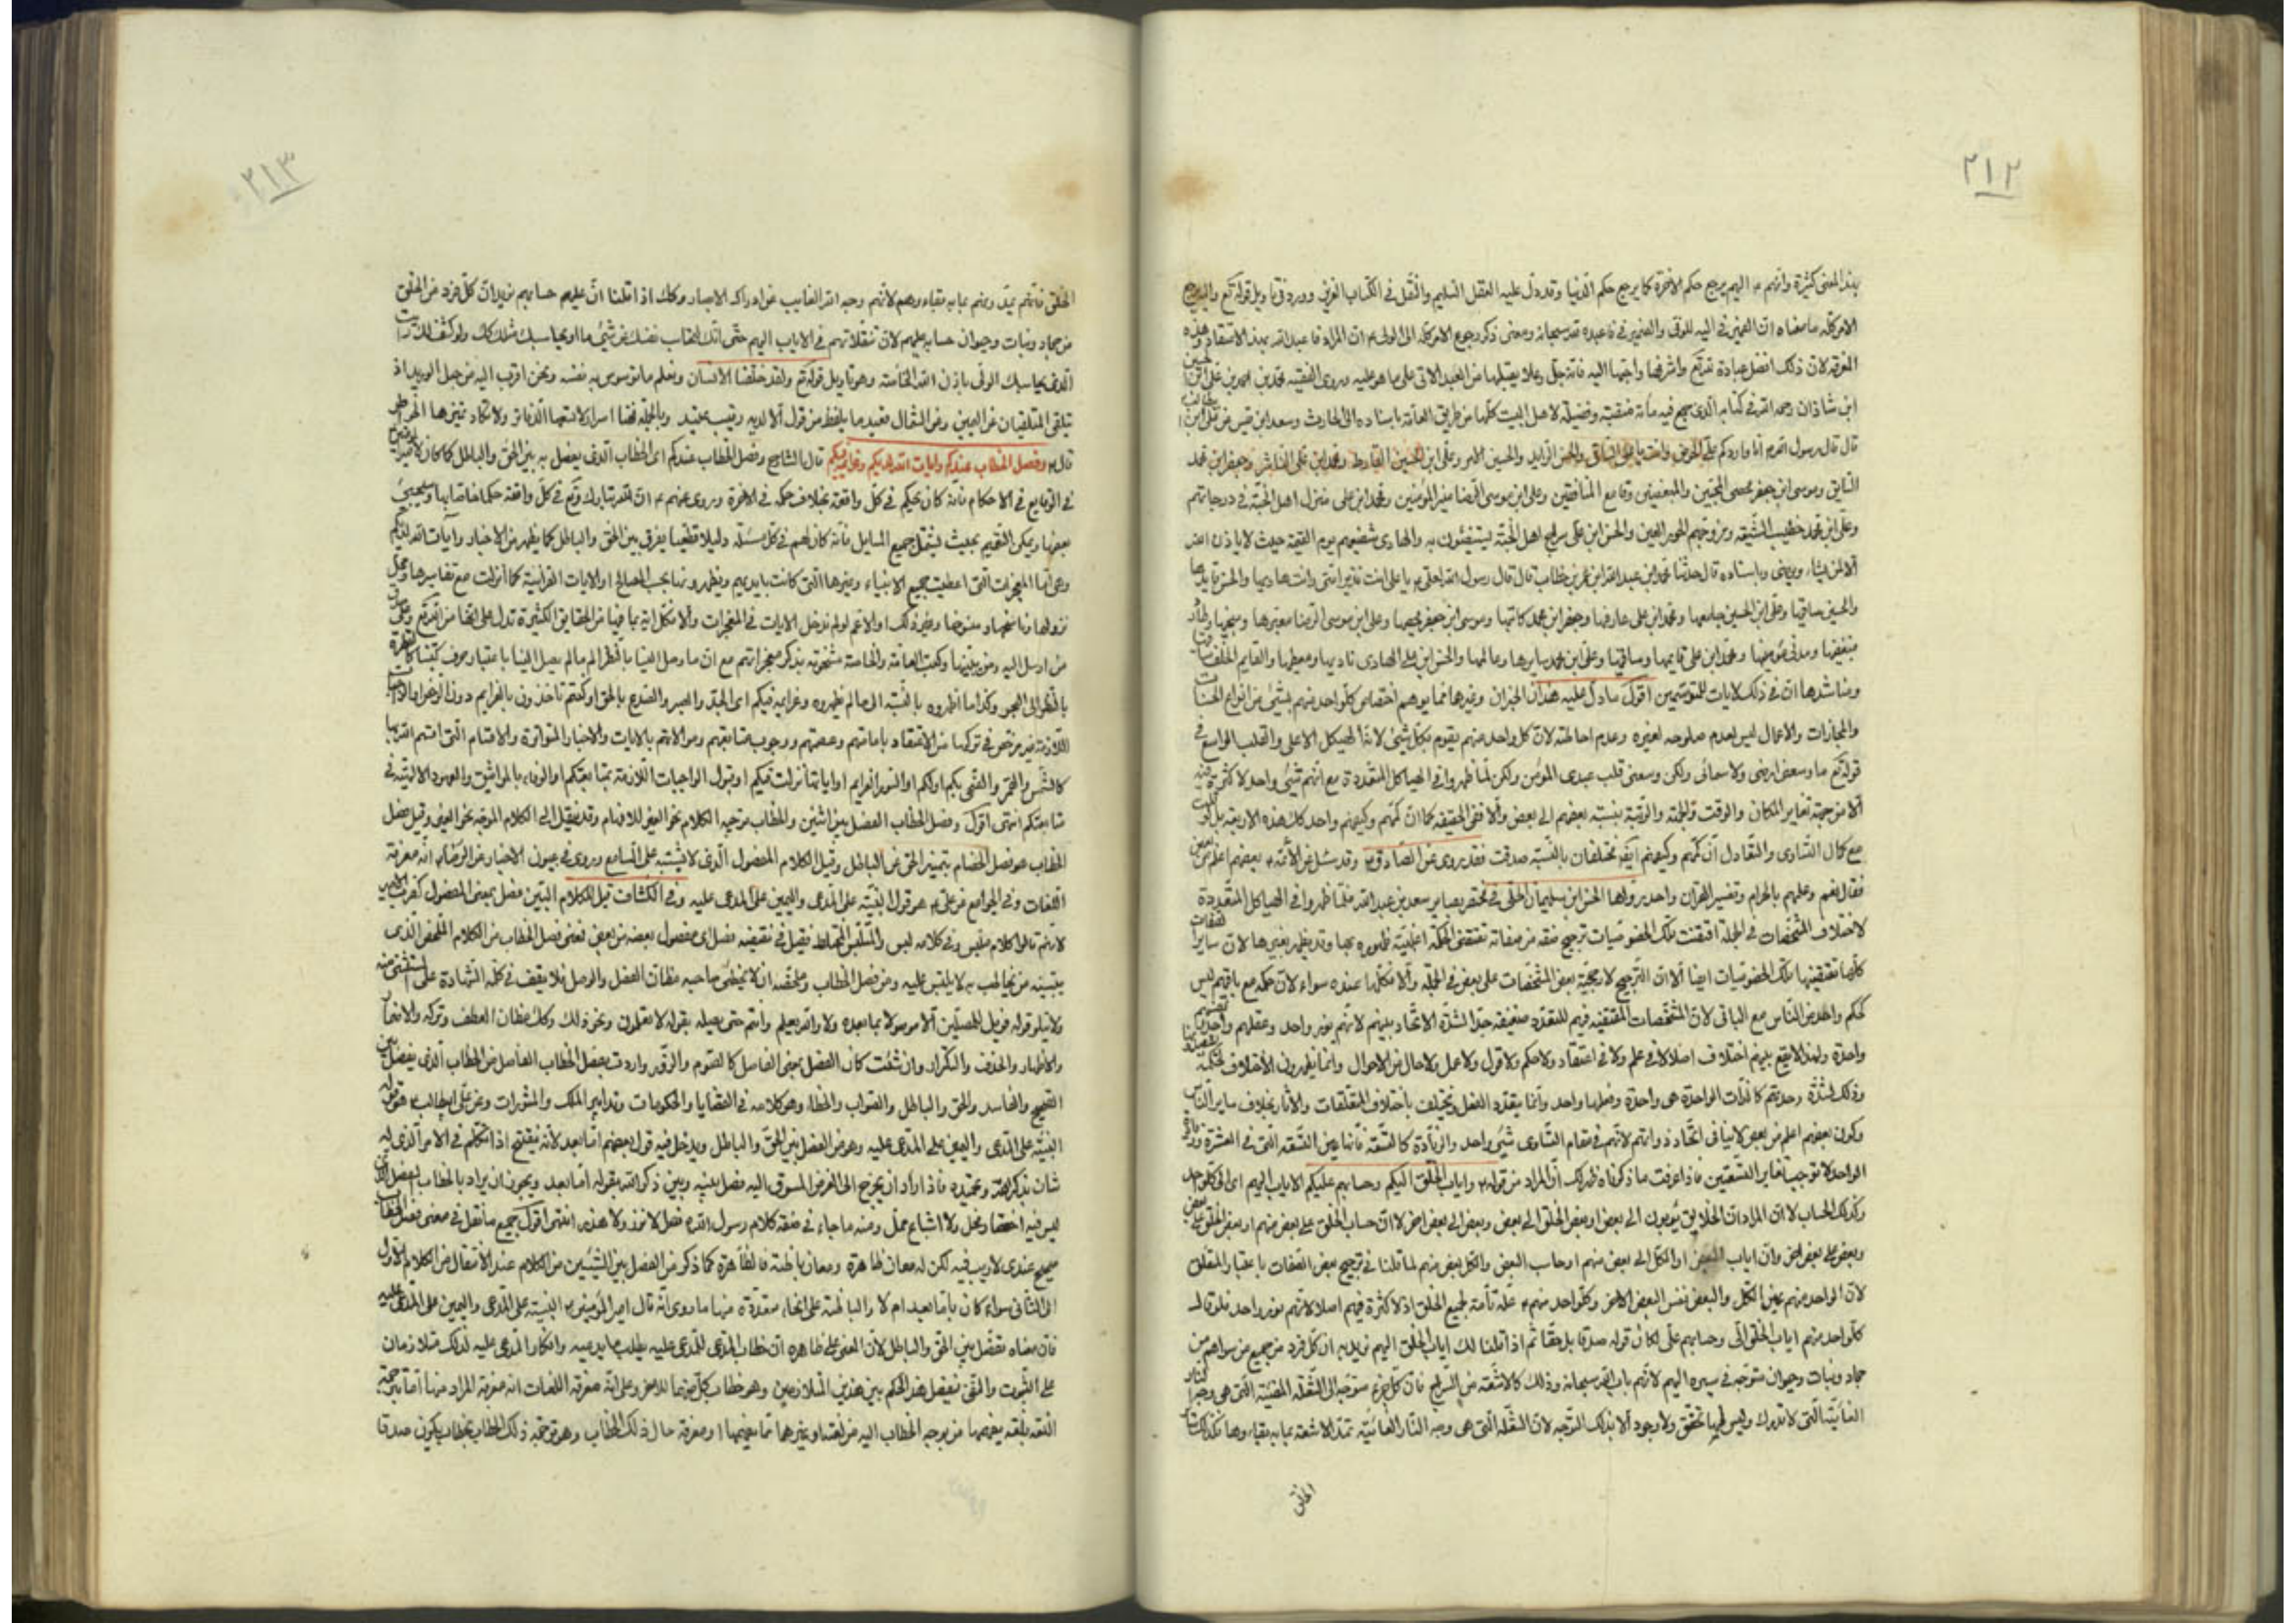 ٢١٢
بهذا المعنى كثيرة وانهم ع اليهم يرجع حكم الاخرة كما يرجع حكم الدنيا وقد دل عليه العقل السليم والنقل في الكتاب العزيز وورد في تاويل قوله تع واليه يرجع
الامر كله ما معناه ان الضمير في اليه للولي والضمير في فاعبده لله سبحانه ومعنى ذكر رجوع الامر كله الى الولي ع ان المراد فاعبد الله بهذا الاعتقاد وهذه
المعرفة لان ذلك افضل عبادة لله تع واشرفها واحبها اليه فانه جل وعلا يقبلها من العبد الاتي على ما هو عليه وروى الفقيه محمد بن احمد بن علي ابن الحسين
ابن شاذان رحمه الله في كتابه الذي جمع فيه مائة منقبة وفضيلة لاهل البيت كلها من طريق العامة باسناده الى الحارث وسعد ابن قيس عن علي ابن ابي طالب
قال قال رسول الله ص انا واردكم على الحوض وانت يا علي الساقي والحسن الذايد والحسين الامر وعلي ابن الحسين الفارط ومحمد ابن علي الناشر وجعفر ابن محمد
السايق وموسى ابن جعفر محصي المحبين والمبغضين وقامع المنافقين وعلي ابن موسى الرضا منير المؤمنين ومحمد ابن علي منزل اهل الجنة في درجاتهم
وعلي ابن محمد خطيب الشيعة ومزوجهم الحور العين والحسن ابن علي سراج اهل الجنة يستضيئون به والهادي شفيعهم يوم القيمة حيث لا ياذن الله
الا لمن يشاء ويرضى وباسناده قال حدثنا محمد ابن عبد الله ابن عمر بن خطاب قال قال رسول الله لعلي ع يا علي انت نذير امتي وانت هاديها والحسن قايدها
والحسين ساقيها وعلي ابن الحسين جامعها ومحمد ابن علي عارفها وجعفر ابن محمد كاتبها وموسى ابن جعفر محصيها وعلي ابن موسى الرضا معبرها ومنجيها وطارد
مبغضيها ومدني مؤمنيها ومحمد ابن علي قايمها وساقيها وعلي ابن محمد سايرها وعالمها والحسن ابن علي الهادي ناديها ومعطيها والقايم الخلف ساقيها
ومناشدها ان في ذلك لايات للمتوسمين اقول ما دل عليه هذان الخبران وغيرهما مما يوهم اختصاص كل واحد منهم بشيء من انواع الحسنات
والمجازات والاعمال ليس لعدم صلوحه لغيره وعدم احاطته لان كل واحد منهم يقوم بكل شيء لانه الهيكل الاعلى والقلب الواسع في
قوله تع ما وسعني ارضي ولا سمائي ولكن وسعني قلب عبدي المؤمن ولكن لما ظهروا في الهياكل المتعددة مع انهم شيء واحد لا كثرة فيه
الا من جهة تغاير المكان والوقت والجهة والرتبة بنسبة بعضهم الى بعض والا ففي الحقيقة كما ان كمهم وكيفهم واحد كك هذه الاربعة بل لو قلت
مع كمال التساوي والتعادل ان كمهم وكيفهم ايضا مختلفان بالنسبة صدقت فقد روى عن الصادق ع وقد سئل عن الأئمة ع بعضهم اعلم من بعض
فقال نعم وعلمهم بالحلال والحرام وتفسير القران واحد رواها الحسن ابن سليمان الحلي في مختصر بصاير سعد بن عبد الله فلما ظهروا في الهياكل المتعددة
لاختلاف المشخصات في الجملة اقتضت تلك الخصوصيات ترجيح صفة من صفاته تقتضي الحكمة اغلبية ظهوره بها وقد يظهر بغيرها لان ساير الصفات
كلها تقتضيها تلك الخصوصيات ايضا الا ان الترجيح لارجحية بعض المشخصات على بعض في الجملة والا فكلها عنده سواء لان حكمه مع باقيهم ليس
كحكم واحد من الناس مع الباقي لان المشخصات المقتضية فيهم للتعدد ضعيفة جدا لشدة الاتحاد بينهم لانهم نور واحد وعقلهم واحد ونفسهم
واحدة ولهذا لا يقع بينهم اختلاف اصلا لا في علم ولا في اعتقاد ولا حكم ولا قول ولا عمل ولا حال من الاحوال وانما يظهرون الاختلاف لحكمة
وذلك لشدة وحدتهم كالذات الواحدة هي واحدة وفعلها واحد وانما يتعدد الفعل ويختلف باختلاف المتعلقات والاثار بخلاف ساير الناس
وكون بعضهم اعلم من بعض لا ينافي اتحاد ذواتهم لانهم في مقام التساوي شيء واحد والزيادة كالتسعة فانها عين التسعة التي في العشرة وزيادة
الواحد لا توجب تغاير التسعتين فاذا عرفت ما ذكرناه ظهر لك ان المراد من قوله ع واياب الخلق اليكم وحسابهم عليكم الاياب اليهم اي الى كل واحد
وكذلك الحساب لا ان المراد ان الخلايق يؤبون الى بعض او بعض الخلق الى بعض وبعض الى بعض اخر لا ان حساب الخلق على بعض منهم او بعض الخلق على بعض
وبعض على بعض اخر وان اياب البعض او الكل الى بعض منهم او حساب البعض والكل بعض منهم لما قلنا في ترجيح بعض الصفات باعتبار المتعلق
لان الواحد منهم عين الكل والبعض نفس البعض الاخر وكل واحد منهم ع علة تامة لجميع الخلق اذ لا كثرة فيهم اصلا لانهم نور واحد فلو قال
كل واحد منهم اياب الخلق الي وحسابهم علي لكان قوله صدقا بل حقا ثم اذا قلنا لك اياب الخلق اليهم نريد به ان كل فرد من جميع من سواهم من
جماد ونبات وحيوان متوجه في سيره اليهم لانهم باب الله سبحانه وذلك كالاشعة من السراج فان كل جزء متوجه الى الشعلة المضيئة التي هي وجه النار
الغائبة التي لا تدرك وليس لها تحقق ولا وجود الا بذلك التوجه لان الشعلة التي هي وجه النار الغائبة تمد الاشعة بما به بقاءوها فكذلك ساير
الخلق
٢١٣
الخلق فانهم بمددونهم بما به بقاءوهم لانهم وجه الله الغايب عن ادراك الابصار وكك اذا قلنا ان عليهم حسابهم نريد ان كل فرد من الخلق
من جماد ونبات وحيوان حسابه عليهم لان تنقلاتهم في الاياب اليهم حتى انك لتحاسب نفسك عن شيء ما او يحاسبك مثلك كك ولو كشف لك رايت
الذي يحاسبك الولي باذن الله الخاصة وهو تاويل قوله تع ولقد خلقنا الانسان ونعلم ما توسوس به نفسه ونحن اقرب اليه من حبل الوريد اذ
يتلقى المتلقيان عن اليمين وعن الشمال قعيد ما يلفظ من قول الا لديه رقيب عتيد وبالجملة فهنا اسرار لا تسعها الدفاتر ولا تكاد تنزهها الخواطر
قال ع وفصل الخطاب عندكم وايات الله لديكم وعزايمه فيكم قال الشارح وفصل الخطاب عندكم اي الخطاب الذي يفصل به بين الحق والباطل كما كان لامير المؤمنين
في الوقايع في الاحكام فانه كان يحكم في كل واقعة بخلاف حكمه في الاخرة وروى عنهم ع ان لله تبارك وتع في كل واقعة حكما خاصا بها وسيجيئ
بعضها ويمكن التعميم بحيث يشمل جميع المسايل فانه كان لهم في كل مسئلة دليلا قطعيا يفرق بين الحق والباطل كما يظهر من الاخبار وآيات الله لديكم
وهي اما المعجزات التي اعطيت جميع الانبياء وغيرها التي كانت بايديهم ويظهرونها بحسب المصالح او الايات القرآنية كما انزلت مع تفاسيرها ومحل
نزولها وناسخها ومنسوخها وغير ذلك او الاعم لو لم ندخل الايات في المعجزات والا فكل اية بما فيها من الحقايق الكثيرة تدل على انها من الله تع وعلى صدق
من ارسل اليه ومن بلغها وكتب العامة والخاصة مشحونة بذكر معجزاتهم مع ان ما وصل الينا بالنظر الى ما لم يصل الينا باعتبار حرف كتبنا كالقطرة
بالنظر الى البحر وكذا ما اظهروه بالنسبة الى ما لم يظهروه وعزايمه فيكم اي الجد والصبر والصدع بالحق او كنتم تاخذون بالعزايم دون الرخص او الواجبات
اللازمة غير مرخص في تركها من الاعتقاد بامامتهم وعصمتهم ووجوب متابعتهم وموالاتهم بالايات والاخبار المتواترة والاقسام التي اقسم الله بها
كالشمس والقمر والضحى بكم او لكم او السور العزايم او اياتها نزلت فيكم او قبول الواجبات اللازمة بمتابعتكم او الوفاء بالمواثيق والعهود الالهية في
متابعتكم انتهى اقول وفصل الخطاب الفصل بين اثنين والخطاب توجيه الكلام نحو الغير للافهام وقد ينقل الى الكلام الموجه نحو الغير وقيل فصل
الخطاب هو فصل الخصام بتمييز الحق عن الباطل وقيل الكلام المفصول الذي لا يشتبه على السامع وروى في عيون الاخبار عن الرضا ع انه معرفة
اللغات وفي الجوامع عن علي ع هو قوله البينة على المدعي واليمين على المدعى عليه وفي الكشاف قيل للكلام البين فصل بمعنى المفصول كضرب الامير
لانهم قالوا كلام ملتبس وفي كلامه لبس والملتبس المختلط فقيل في نقيضه فصل اي مفصول بعضه من بعض فمعنى فصل الخطاب من الكلام الملخص الذي
يتبينه من يخاطب به لا يلتبس عليه ومن فصل الخطاب وملخصه ان لا يخطئ صاحبه مظان الفصل والوصل فلا يقف في كلمة الشهادة على المستثنى منه
ولا يتلو قوله فويل للمصلين الا موصولا بما بعده ولا والله يعلم وانتم حتى يصله بقوله لا تعلمون ونحو ذلك وكك مظان العطف وتركه والاضمار
والاظهار والحذف والتكرار وان شئت كان الفصل بمعنى الفاصل كالصوم والزور واردت بفصل الخطاب الفاصل من الخطاب الذي يفصل بين
الصحيح والفاسد والحق والباطل والصواب والخطاء وهو كلامه في القضايا والحكومات وتدابير الملك والمشورات وعن علي ابن ابيطالب ع هو قوله
البينة على المدعي واليمين على المدعى عليه وهو من الفصل بين الحق والباطل ويدخل فيه قول بعضهم اما بعد لانه يفتتح اذا تكلم في الامر الذي له
شان بذكر الله وتحميده فاذا اراد ان يخرج الى الغرض المسوق اليه فصل بينه وبين ذكر الله بقوله اما بعد ويجوز ان يراد بالخطاب الفصل الذي
ليس فيه اختصار مخل ولا اشباع ممل ومنه ما جاء في صفة كلام رسول الله ص فصل لا نزر ولا هذر انتهى اقول جميع ما نقل في معنى فصل الخطاب
صحيح عندي لا ريب فيه لكن له معان ظاهرة ومعان باطنة فالظاهرة كما ذكر من الفصل بين الشيئين من الكلام عند الانتقال من الكلام الاول
الى الثاني سواء كان باما بعد ام لا والباطنة على انحاء متعددة منها ما روى انه قال امير المؤمنين ع البينة على المدعي واليمين على المدعى عليه
فان معناه تفصل بين الحق والباطل لان المعنى على ظاهره ان خطاب المدعي للمدعى عليه بطلب ما يدعيه وانكار المدعى عليه لذلك متلازمان
على الثبوت والنفي فيفصل هذا الحكم بين هذين المتلازمين وهو خطاب كل منهما للاخر وعلى انه معرفة اللغات انه معرفة المراد منها اما بترجمة
اللغة بلغة يفهمها من يوجه الخطاب اليه من لغته او غيرهما مما يفهمها او معرفة حال ذلك الخطاب وهو توجيه ذلك الخطاب بخطاب يكون صدقا